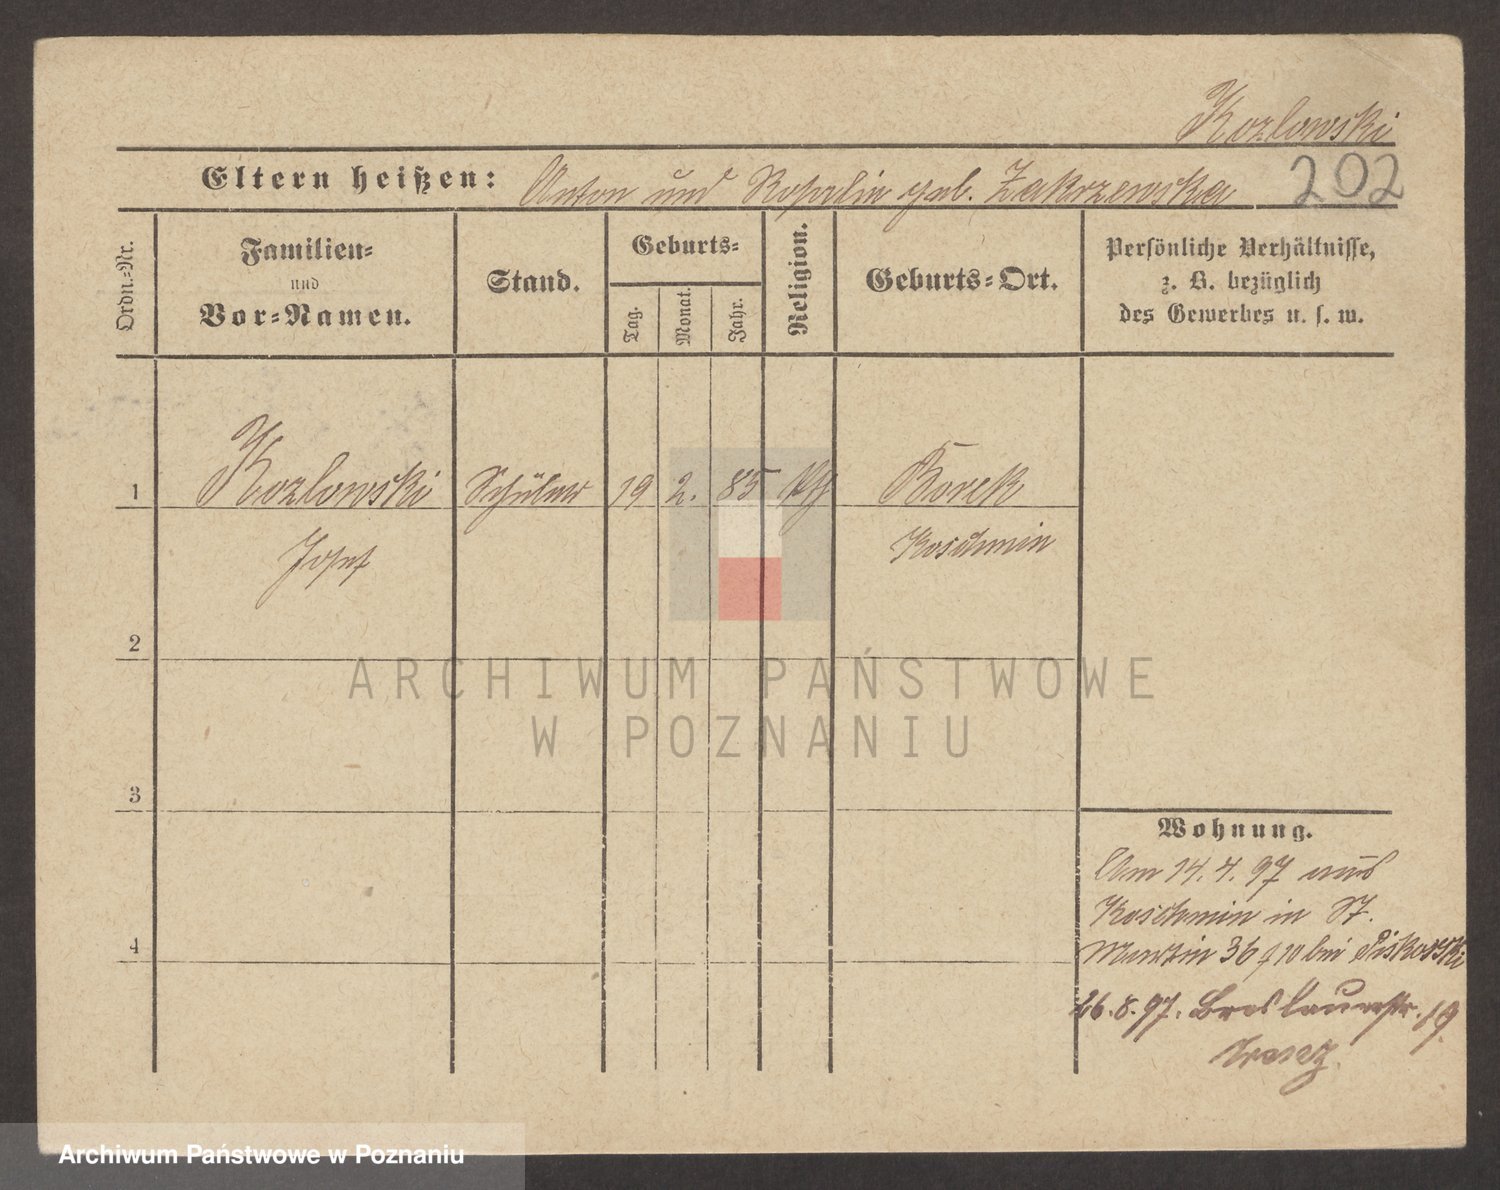 Kozlowski
Eltern heißen: Anton und Rosalie geb. Zakrzewska 202
Ordn.-Nr.
Familien-
und
Vor-Namen.
Stand.
Geburts-
Tag.
Monat.
Jahr.
Religion.
Geburts-Ort.
Persönliche Verhältnisse,
z. B. bezüglich
des Gewerbes u. s. w.
1 Kozlowski Schüler 19 2. 85 Borek
Josef Koschmin
2
3
4
Wohnung.
Am 14.4.97 aus
Koschmin in St.
Martin 36 bei Piskorski
26.8.97. Breslauerstr. 19.
ARCHIWUM PAŃSTWOWE
W POZNANIU
Archiwum Państwowe w Poznaniu